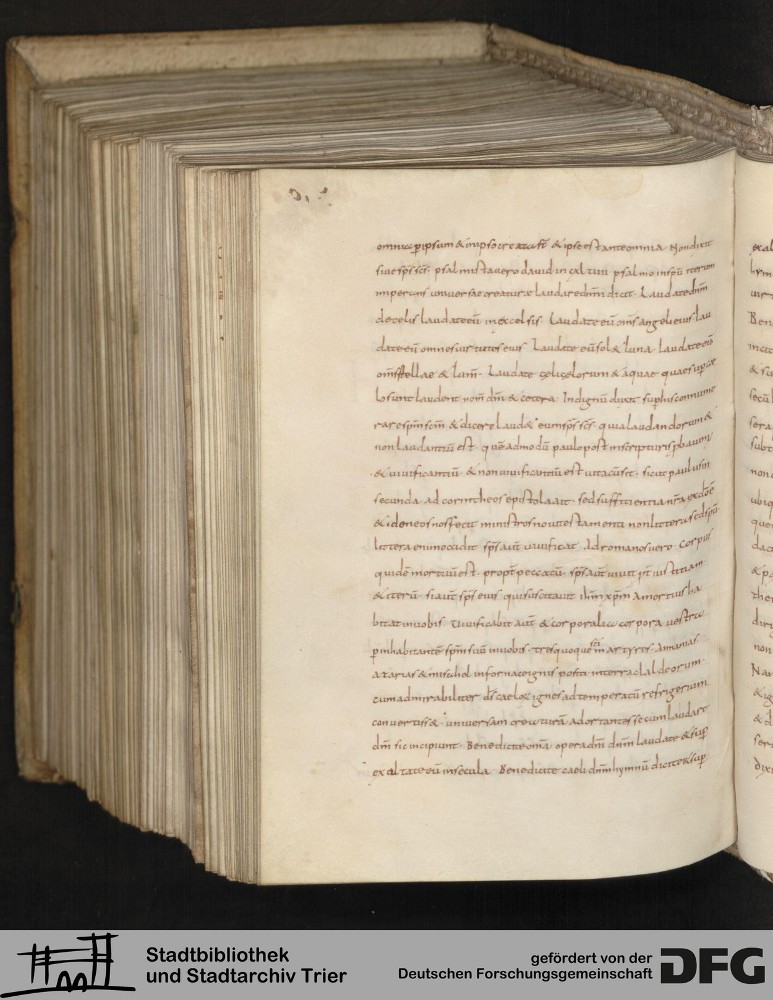 omnia p ipsum & in ipso creata st & ipse est ante omnia Non dixit
siue sps scs. psalmista uero dauid in çal tiui psalmo inspu iterum
imperans uniuersae creaturae laudare dnm dicit. Laudate dnm
de celis laudate eu in excelsis. Laudate eu oms angeli eius lau
date eu omnes uirtutes eius. Laudate eu sol & luna. laudate eu
oms stellae & lum. Laudate çeli çelorum & aquae quae sup cae
los sunt laudent nom dni & cetera. Indignu duxit sup his connume
rare spm scm & dicere laudate eum sps scs. quia laudandorum &
non laudantiu est. que admodu paulo post in scripturis pbauim
& uiuificantiu & non uiuificantiu est uita cu sit. sicut paulus in
secunda ad corintheos epistola ait. sed sufficientia nra ex do e
& ideneos nos fecit ministros noui testamenti non littera sed spu
littera enim occidit sps aut uiuificat. Ad romanos uero. Corpus
quide mortuu est. propt peccatu. sps aut uiuit pt iustitiam
& iteru. si aut sps eius qui suscitauit ihm xpm a mortuis ha
bitat in uobis. Uiuificabit aut & corporalia corpora uestra
p inhabitante spm suu in uobis. tres quoque sci martyres. Annanias
azarias & misahel in fornace ignis positi in terra claldeorum
cum admirabiliter ds caelo & ignes ad temperatu refrigerium
conuertiss&. uniuersam creaturam adortantes secum laudare
dm sic incipiunt. Benedicite oma opera dni dnm laudate & sup
exaltate eu in secula. Benedicite caeli dnm hymnu dicite & sup
Stadtbibliothek
und Stadtarchiv Trier
gefördert von der
Deutschen Forschungsgemeinschaft
DFG